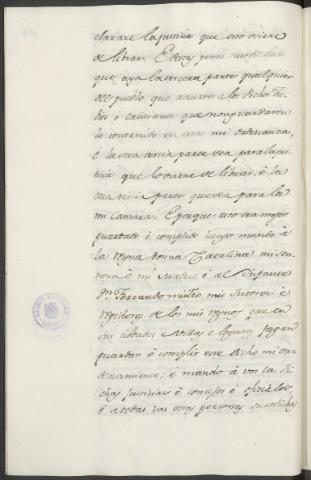 clarare la justicia que esto oviere
de librar. E destas penas
que aya la tercera parte qualquier
del pueblo que acusare a los dichos Ju-
dios ó cristianos que non guardaron
lo contenido en esta mi ordenanza,
é la otra tercia parte sea para la jus-
ticia que lo oviere de librar, é la
otra tercia parte que sea para la
mi Camara. E porque esto sea mejor
guardado é complido luego mando á
la Reyna donna Catalina mi Sen-
nora é mi Madre é al Infante
Dn. Ferrando mi tio mis Tutores é
regidores de los mis regnos que en
mis cibdades é villas é logares fagan
guardar é complir este dicho mi or-
denamiento; é mando á vos las di-
chas justicias é concejos é oficiales,
é a todas las otras personas susodichas